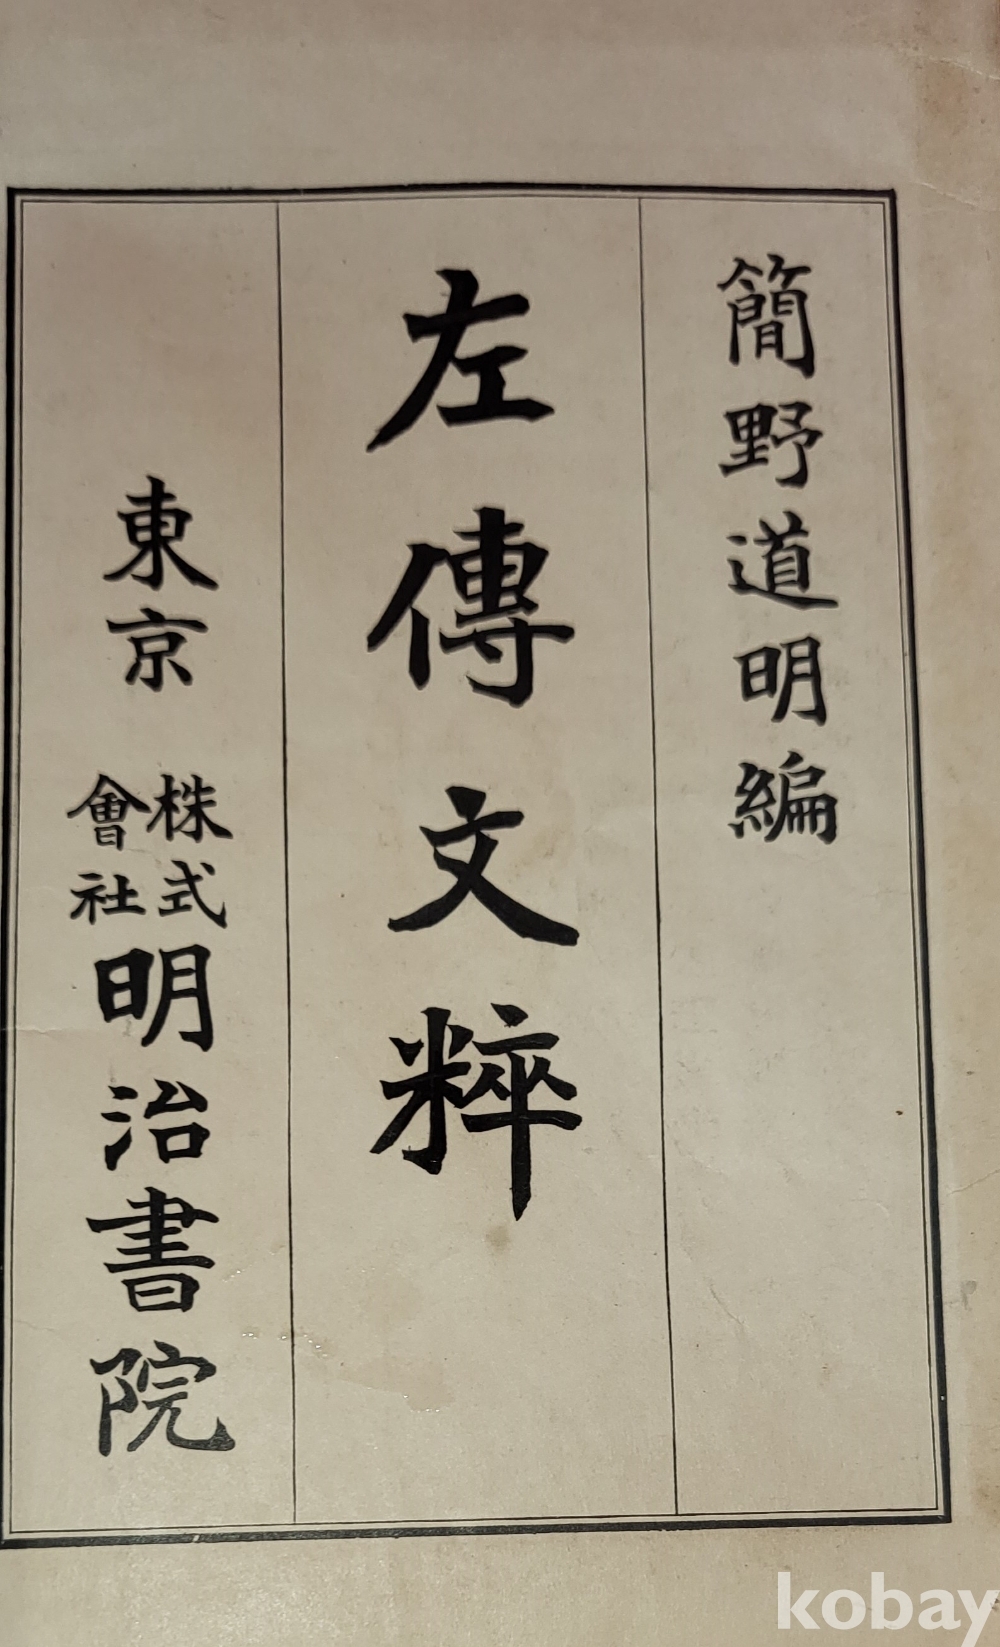 簡野道明編
左傳文粹
東京 株式會社明治書院
kobay